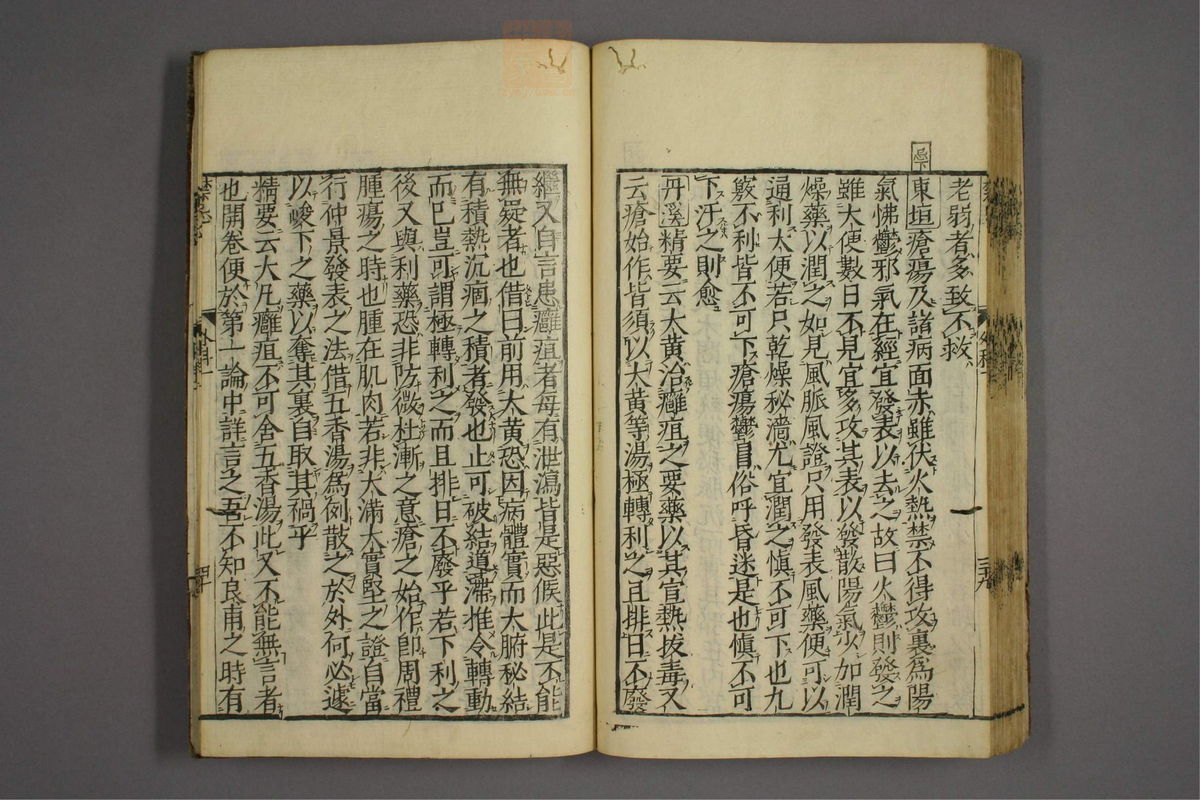 老弱者多致不救
忌下
東垣瘡瘍及諸病面赤雖伏火熱禁不得攻裏爲陽
氣怫鬱邪氣在經宜發表以去之故曰火鬱則發之
雖大便數日不見宜多攻其表以發散陽氣少加潤
燥藥以潤之如見風脈風證只用發表風藥便可以
通利大便若只乾燥秘濇尤宜潤之愼不可下也九
竅不利皆不可下瘡瘍鬱冒俗呼昏迷是也愼不可
下汗之則愈
丹溪精要云大黄治癰疽之要藥以其宣熱拔毒又
云瘡始作皆須以大黄等湯極轉利之且排日不廢
繼又自言患癰疽者每有泄瀉皆是惡候此是不能
無疑者也借曰前用大黄恐因病體實而大腑秘結
有積熱沉痼之積者發也止可破結導滯推令轉動
而已豈可謂極轉利之而且排日不廢乎若下利之
後又與利藥恐非防微杜漸之意瘡之始作卽周禮
腫瘍之時也腫在肌肉若非大滿大實堅之證自當
行仲景發表之法借五香湯爲例散之於外何必遽
以峻下之藥以奪其裏自取其禍乎
精要云大凡癰疽不可舍五香湯此又不能無言者
也開卷便於第一論中詳言之吾不知良甫之時有